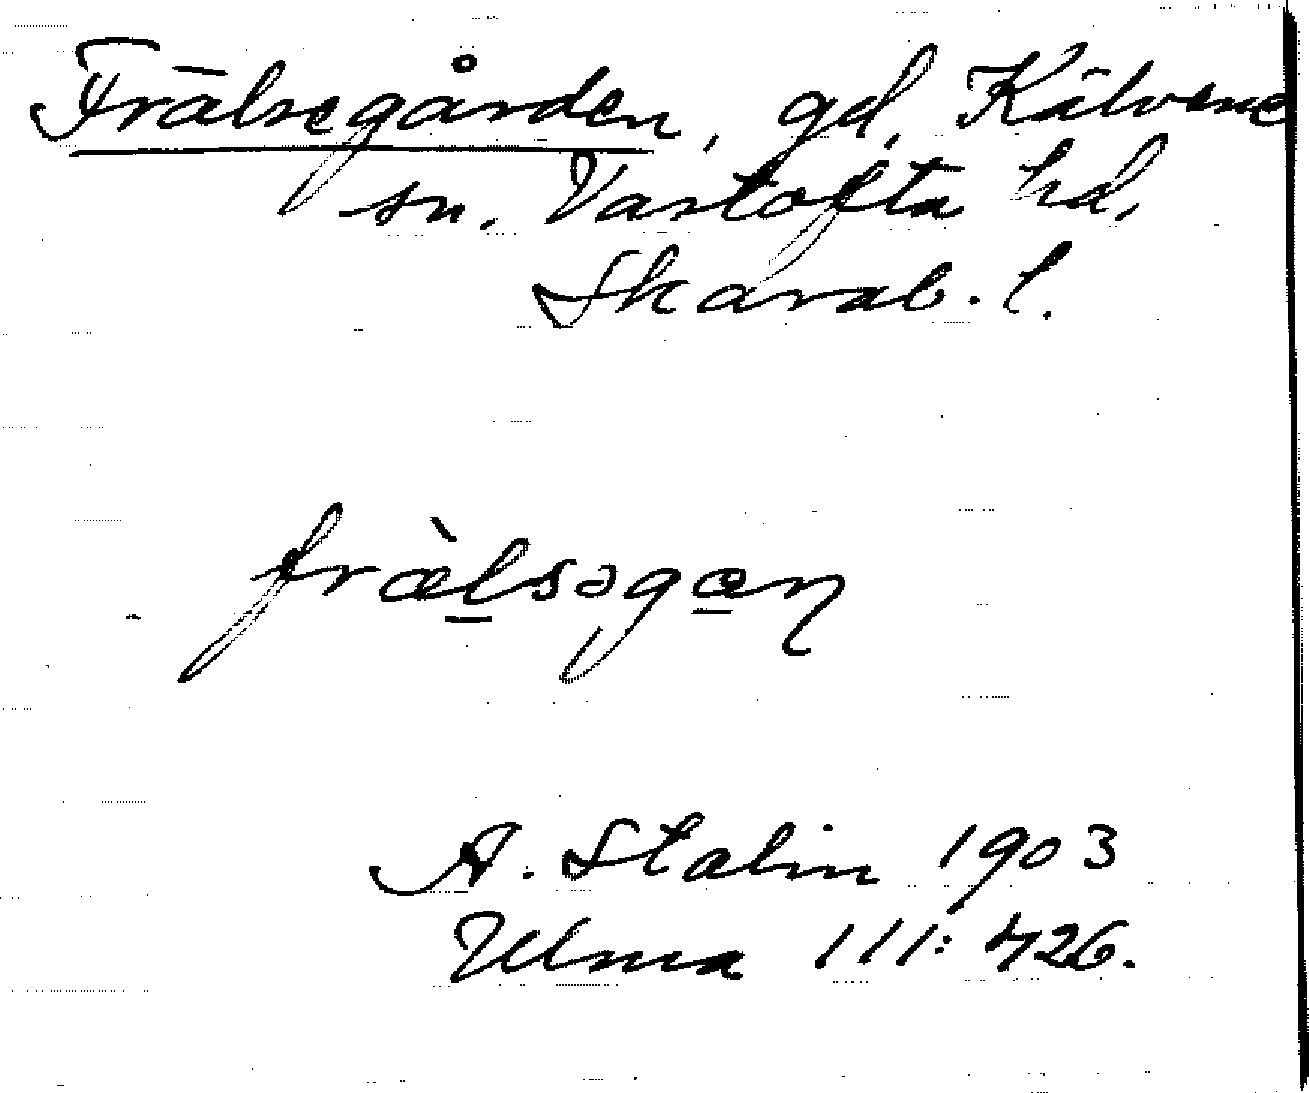 Frälsegården, gd, Kälvene
sn. Vartofta hd,
Skarab. l.
fræ̀lsəgaɳ
A. Stalin 1903
Ulma 111: 426.